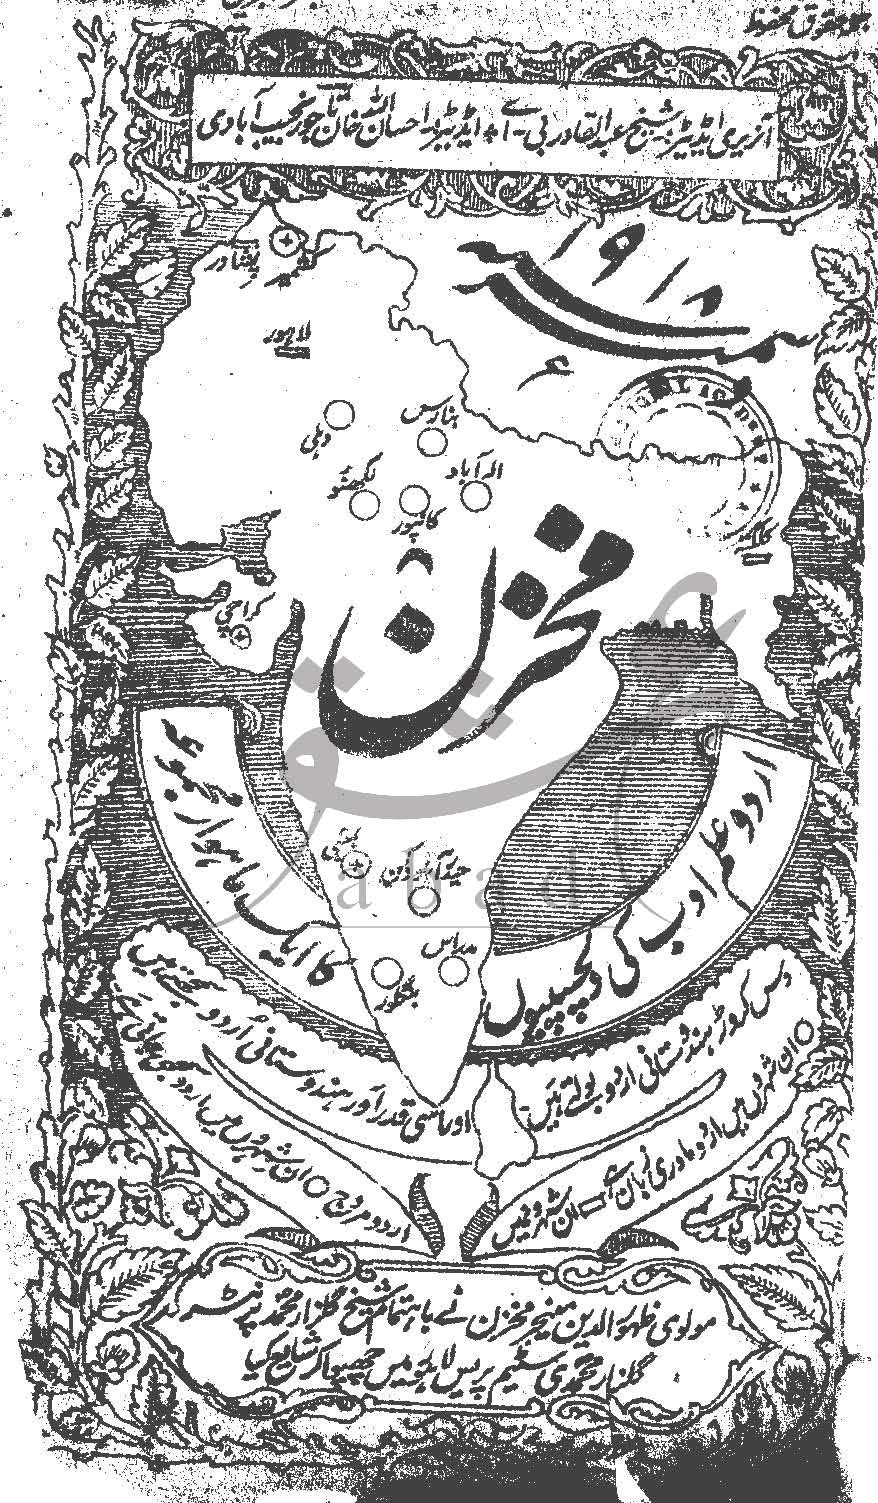 جملہ حقوق محفوظ
آنریری ایڈیٹر شیخ عبدالقادر بی۔اے + ایڈیٹر احسان اللہ خاں تاجور نجیب آبادی
پشاور
لاہور
دہلی
بنارس
لکھنؤ
الہ آباد
کانپور
کراچی
مخزن
اردو علم ادب کی دلچسپیوں
کا ماہوار مجموعہ
بمبئی
حیدرآباد دکن
مدراس
بنگلور
abad
دس کروڑ ہندوستانی اردو بولتے ہیں
اور اسی قدر اور ہندوستانی اردو سمجھتے ہیں
○ ان شہروں میں اردو مادری زبان ہے
ان شہروں میں
○ ان شہروں میں اردو
اردو مروج
مولوی ظہور الدین مینیجر مخزن نے باہتمام شیخ گلزار محمد پرنٹر
گلزار محمدی سٹیم پریس لاہور میں چھپوا کر شایع کیا